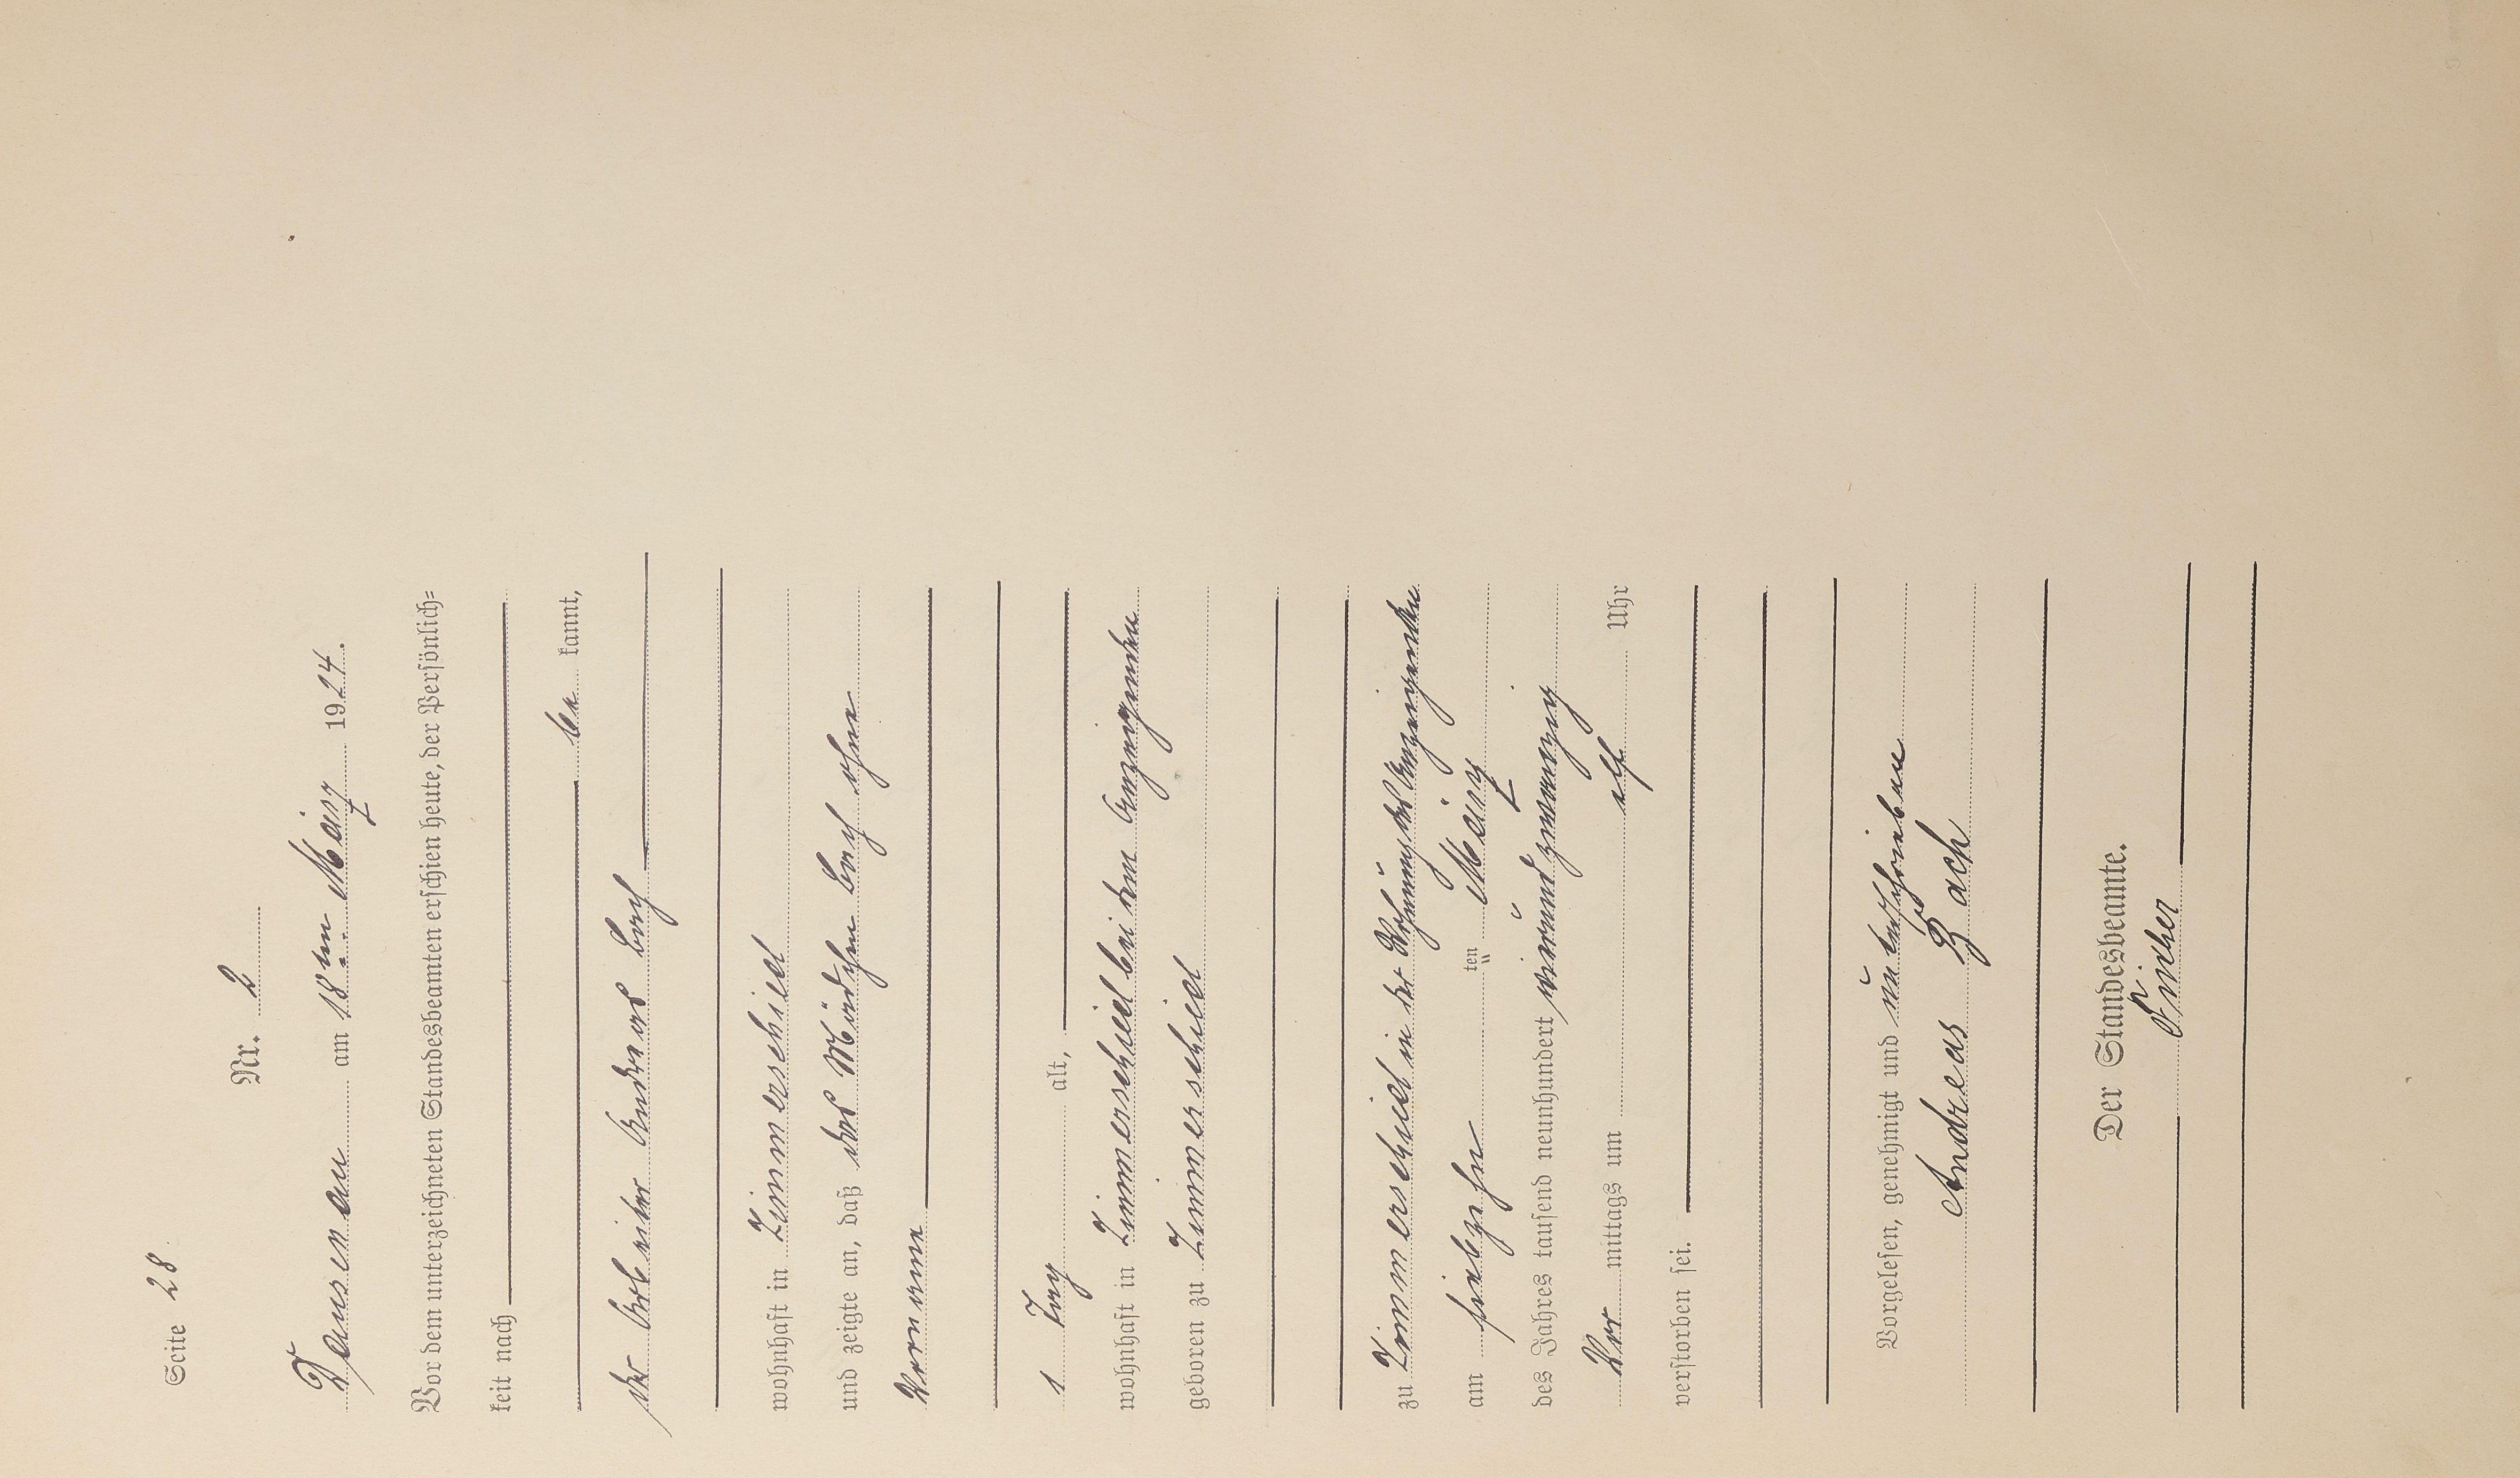 Seite 28
Nr. 2
Dausenau am 18ten März 1924.
Vor dem unterzeichneten Standesbeamten erschien heute, der Persönlich=
keit nach
be kannt,
der Arbeiter Andreas Bach
wohnhaft in Zimmerschied
und zeigte an, daß das Mädchen Bach ohne
Vorname
1 Tag alt,
wohnhaft in Zimmerschied bei dem Anzeigenden
geboren zu Zimmerschied
zu Zimmerschied in der Wohnung des Anzeigenden
am siebzehn ten März
des Jahres tausend neunhundert vierundzwanzig
Vor mittags um elf Uhr
verstorben sei.
Vorgelesen, genehmigt und unterschrieben
Andreas Bach
Der Standesbeamte.